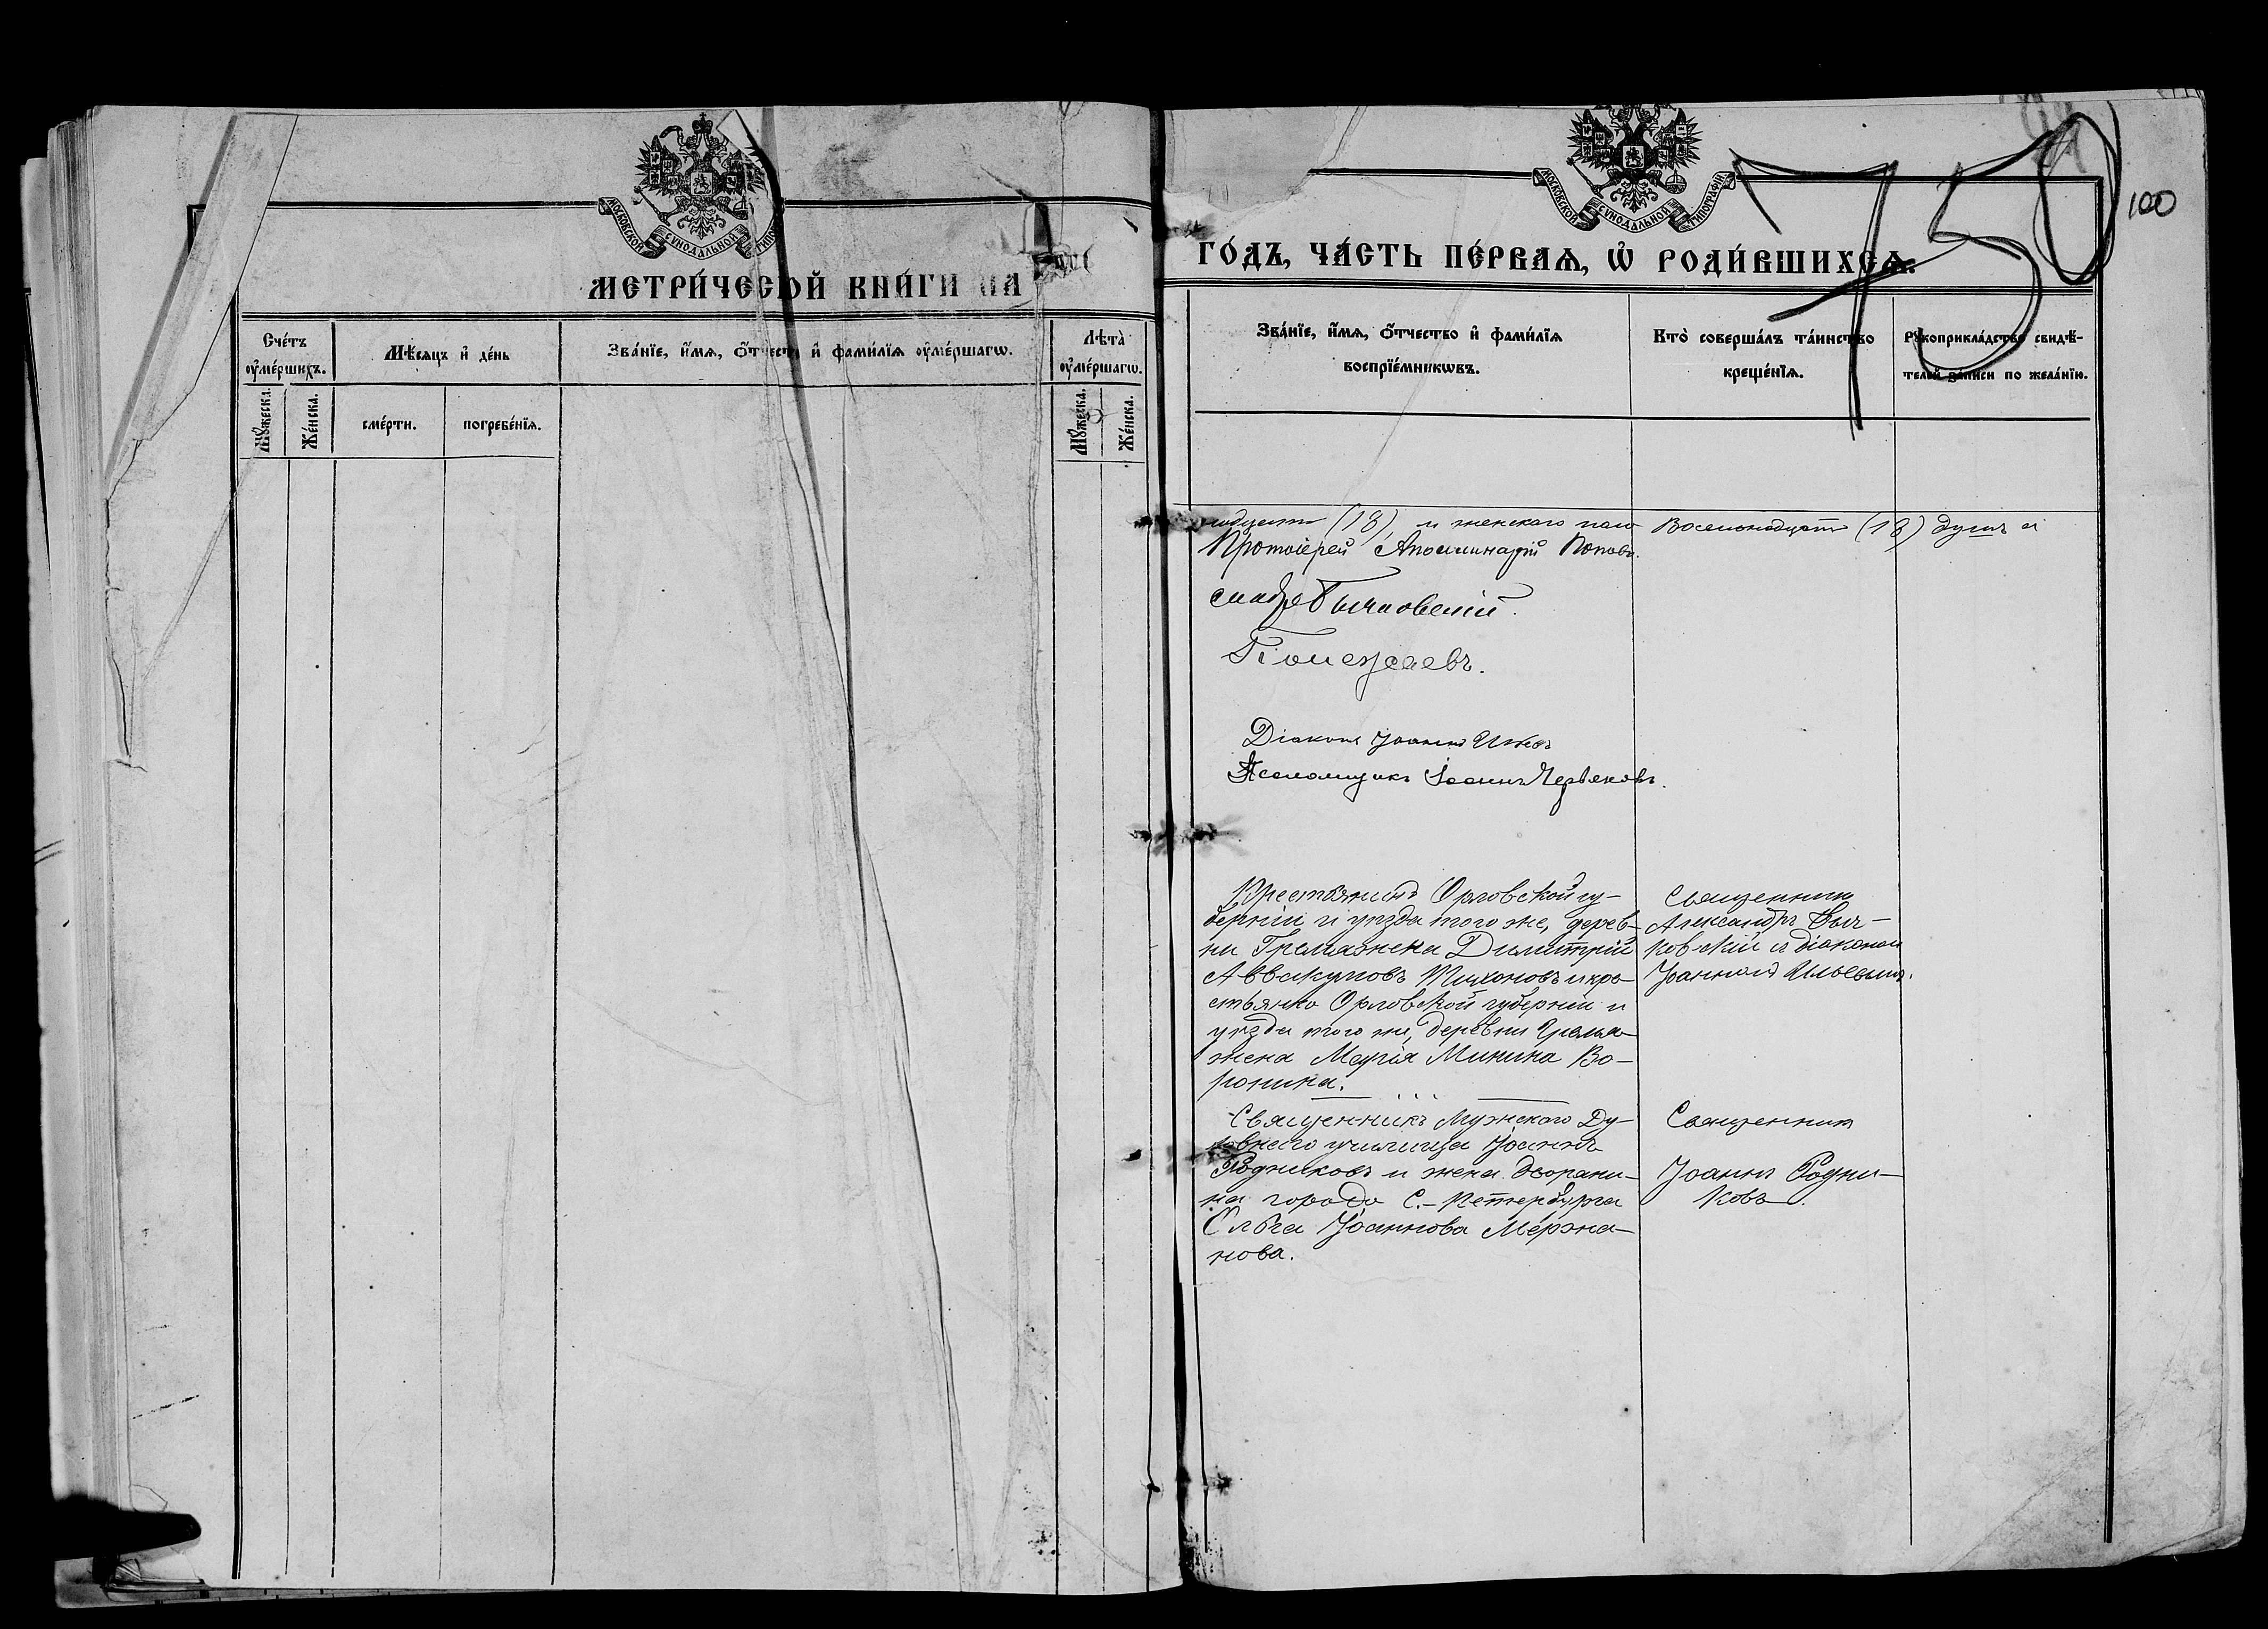 МОСКОВСКОЙ СУНОДАЛЬНОЙ ТИПОГРАФІИ
МЕТРИ́ЧЕСКОЙ КНИ́ГИ НА
Сче́тъ оу҆ме́ршихъ.
Мѣ́сяцъ и҆ де́нь
Зва́нїе, и҆́мѧ, ѻ҆́тчество и҆ фами́лїѧ оу҆ме́ршагѡ.
Лѣ́та̀ оу҆ме́ршагѡ.
Мꙋ́жеска.
Же́нска.
сме́рти.
погребе́нїѧ.
Мꙋ́жеска.
Же́нска.
МОСКОВСКОЙ СУНОДАЛЬНОЙ ТИПОГРАФІИ
750
100
ГО́ДЪ, ЧА́СТЬ ПЕ́РВАѦ, Ѡ҆ РОДИ́ВШИХСѦ.
Зва́нїе, и҆́мѧ, ѻ҆́тчество и҆ фами́лїѧ
воспрїе́мникѡвъ.
Кто̀ соверша́лъ та́инство
креще́нїѧ.
Рꙋкоприкла́дство свидѣ́-
телей за́писи по жела́нїю.
надцать (18) и женскаго пола Восемнадцать (18) душъ а
Протоіерей Аполлинарій Поповъ.
Діаконъ Іоаннъ
Псаломщикъ Іоаннъ Червяковъ.
Крестьянинъ Орловской гу-
берніи и уѣзда того же, дерев-
ни Димитрій
Аввакумовъ Тихоновъ и кре-
стьянка Орловской губерніи и
уѣзда того же, деревни
Марія Минина Во-
ронина.
Священникъ
Александръ Быч-
ковскій съ діакономъ
Іоанномъ Ильевымъ.
Священникъ Мужского Ду-
ховнаго училища Іоаннъ
Родниковъ и жена дворяни-
на города С.-Петербурга
Ольга Іоаннова Мержа-
нова.
Священникъ
Іоаннъ Родни-
ковъ.